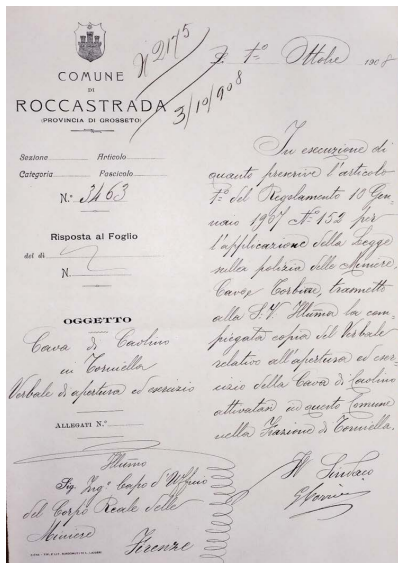 N 2175
3/10/908
COMUNE
DI
ROCCASTRADA
(PROVINCIA DI GROSSETO)
Sezione Articolo
Categoria Fascicolo
N.° 3463
Risposta al Foglio
del dì
N.
OGGETTO
Cava di Caolino
in Torniella
Verbale di apertura ed esercizio
ALLEGATI N.°
Illumo
Sig. Ingre Capo d'Ufficio
del Corpo Reale delle
Miniere
Firenze
1° Ottobre 1908
In esecuzione di
quanto prescrive l'articolo
1° del Regolamento 10 Gen-
naio 1907 N° 152 per
l'applicazione della Legge
sulla polizia delle Miniere,
Cave e Torbiere, trasmetto
alla S.V. Illuma la com-
piegata copia del Verbale
relativo all'apertura ed eser-
cizio della Cava di Caolino
attivatasi in questo Comune
nella Frazione di Torniella.
Il Sindaco